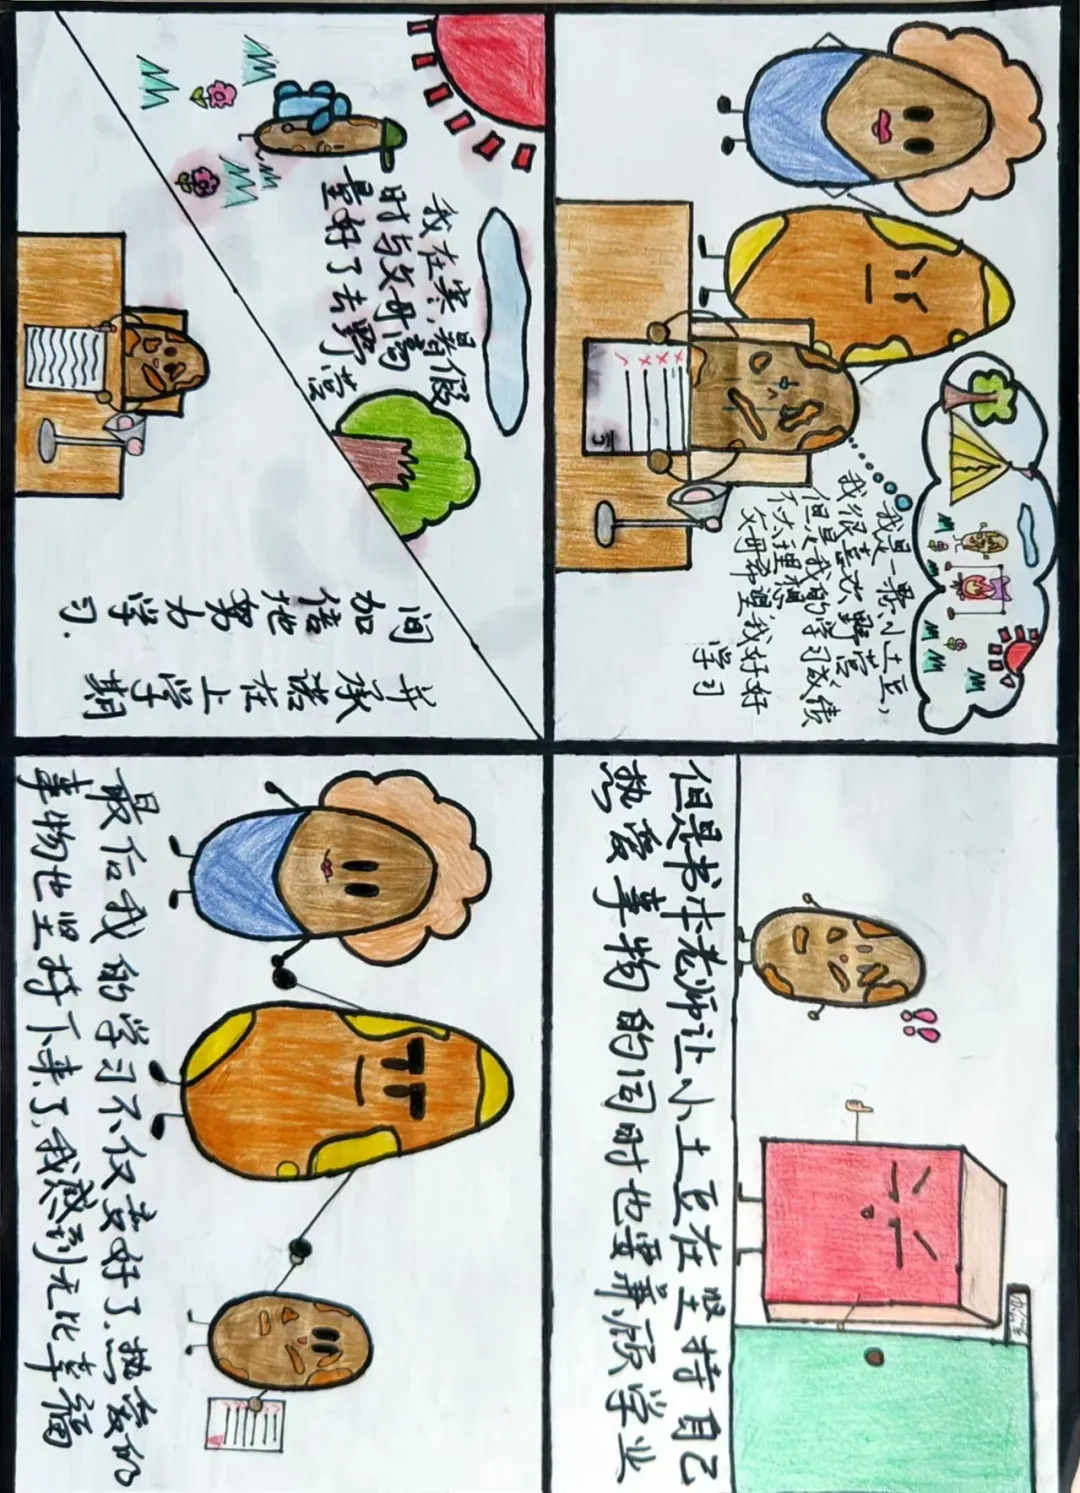 我是一颗小土豆,
我很喜欢野营
但是我的学习成绩
不太理想
父母希望我好好
学习
!!
办公室
但是书本老师让小土豆在坚持自己
热爱事物的同时也要兼顾学业
我在寒暑假
时与父母商
量好了去野营
并承诺在上学期
间加倍地努力学习.
最后我的学习不仅变好了,热爱的
事物也坚持下来了,我感到无比幸福